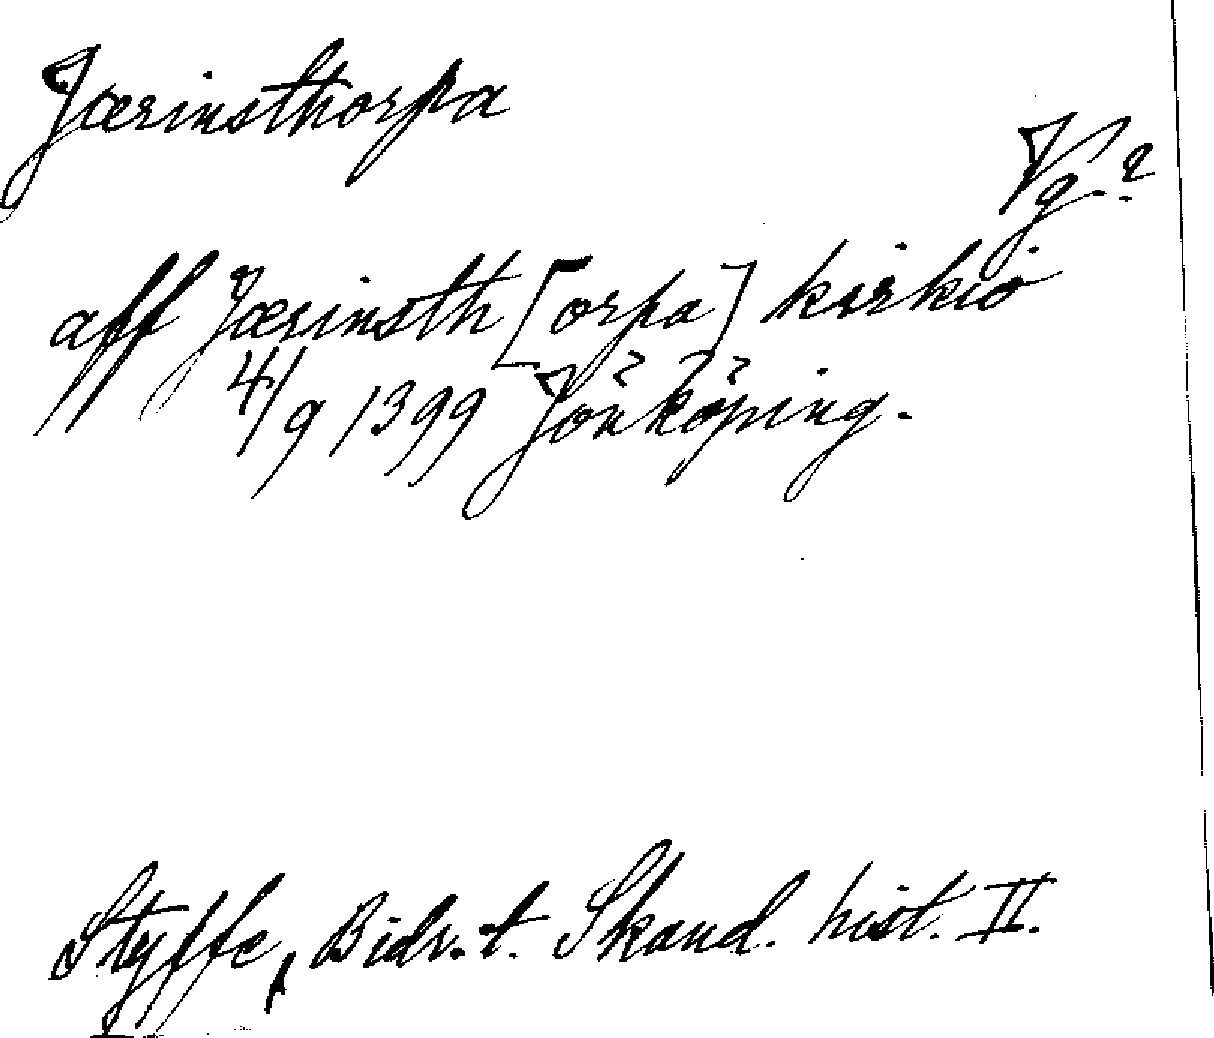 Jærinsthorpa
Vg.?
aff Jærinsth[orpa] kirkio
4/9 1399 Jönköping.
Styffe, Bidr. t. Skand. hist. II.